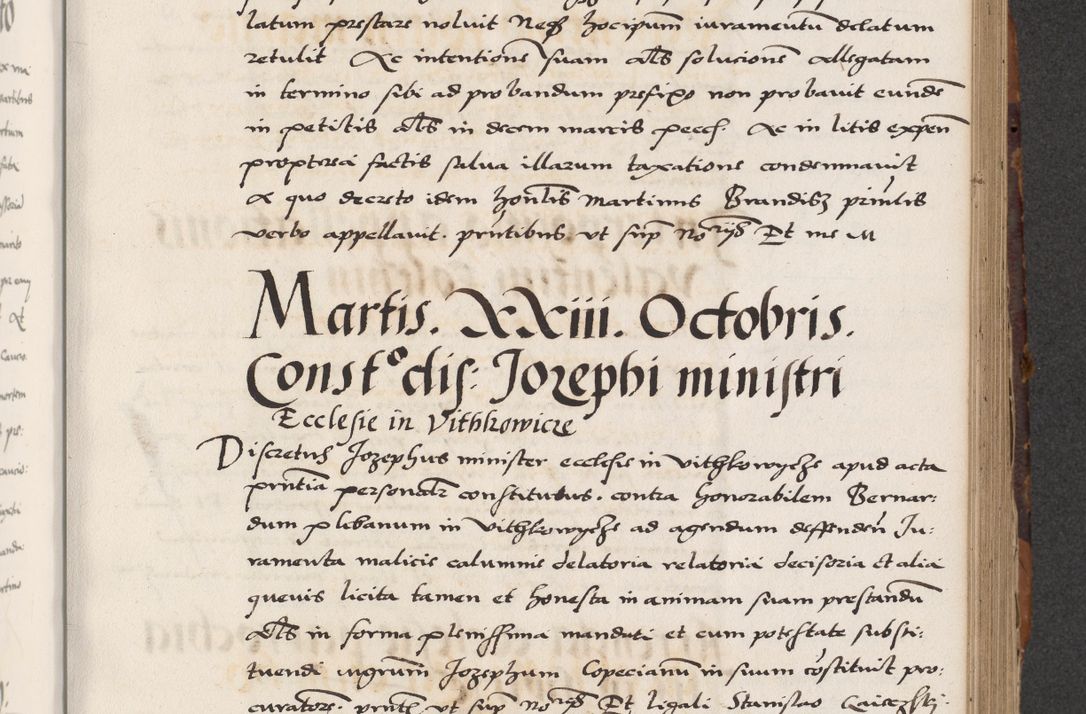 latum prestare noluit Neqȝ hocipsum iuramentū delatum
retulit Ac intentionē suam als solucionē allegatam
in termino sibi ad probandum prefixo non probavit eundē
in petitis als in decem marcis pecc. Ac in litis expeñ
propterea factis salva illarum taxatione condemnavit
A quo decreto idem honlis Martinus Brandisz prīnlis
verbo appellavit. prñtibus. vt sup No rijs Et me M
Martis. XXiii. Octobris.
Constº dis: Jozephi ministri
Ecclesie in Vithkowicze
Discretus Jozephus minister ecclesie in vithkowycze apud acta
prñtia personalr constitutus. contra honorabilem Bernar:
dum plibanum in vithkowycze ad agendum deffendeñ Ju:
ramenta malicie calumnie delatoria relatoria decisoria et alia
quevis licita tamen et honesta in animam suam prestandū
als in forma plenissima mandati et cum potestate substi:
tuendi mgrum Jozephum Copecianū in suum cōstituit pro:
curatorē. prñtē vt sup No rijs Et ligali Stanislao